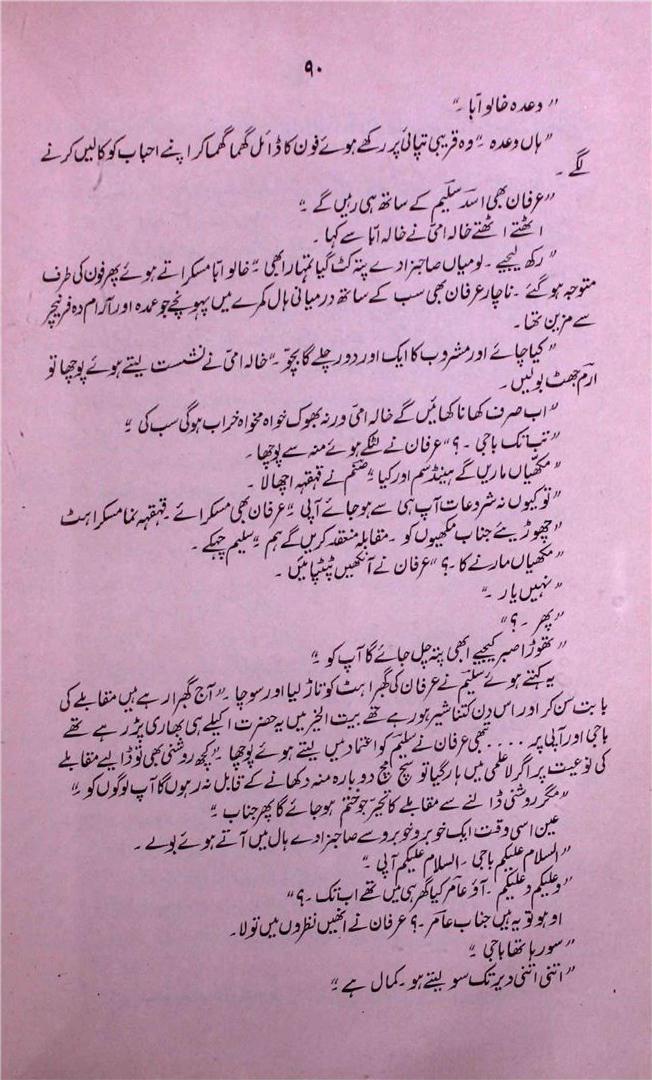 ۹۰
"وعدہ خالو ابا۔"
"ہاں وعدہ۔" وہ قریبی تپائی پر رکھے ہوئے فون کا ڈائل گھما گھما کر اپنے احباب کو کالیں کرنے
لگے۔
"عرفان بھی اسد سلیم کے ساتھ ہی رہیں گے۔"
اٹھتے اٹھتے خالہ امی نے خالہ ابا سے کہا۔
"رکھ لیجیے۔ لو میاں صاحبزادے پتہ کٹ گیا تمہارا بھی۔" خالو ابا مسکراتے ہوئے پھر فون کی طرف
متوجہ ہو گئے۔ ناچار عرفان بھی سب کے ساتھ درمیانی ہال کمرے میں پہونچے جو عمدہ اور آرام دہ فرنیچر
سے مزین تھا۔
"کیا چائے اور مشروب کا ایک اور دور چلے گا بچو۔" خالہ امی نے نشست لیتے ہوئے پوچھا تو
ارم جھٹ بولیں۔
"اب صرف کھانا کھائیں گے خالہ امی ورنہ بھوک خواہ مخواہ خراب ہو گی سب کی۔"
"تب تک باجی۔؟" عرفان نے لٹکے ہوئے منہ سے پوچھا۔
"مکھیاں ماریں گے ہینڈسم اور کیا۔" صنم نے قہقہہ اچھالا۔
"تو کیوں نہ شروعات آپ ہی سے ہو جائے آپی۔" عرفان بھی مسکرائے۔ قہقہہ نما مسکراہٹ
"چھوڑیئے جناب مکھیوں کو۔ مقابلہ منعقد کریں گے ہم۔" سلیم چہکے۔
"مکھیاں مارنے کا۔؟" عرفان نے آنکھیں پٹپٹائیں۔
"نہیں یار۔"
"پھر۔؟"
"تھوڑا صبر کیجیے ابھی پتہ چل جائے گا آپ کو۔"
یہ کہتے ہوئے سلیم نے عرفان کی گھبراہٹ کو تاڑ لیا اور سوچا۔ "آج گھبرا رہے ہیں مقابلے کی
بابت سن کر اور اس دن کتنا شیر ہو رہے تھے بیت الخیر میں یہ حضرت اکیلے ہی بھاری پڑ رہے تھے
باجی اور آپی پر.... تبھی عرفان نے سلیم کو اعتماد میں لیتے ہوئے پوچھا۔ "کچھ روشنی بھی تو ڈالیے مقابلے
کی نوعیت پر اگر لاعلمی میں ہار گیا تو سچ مچ دوبارہ منہ دکھانے کے قابل نہ رہوں گا آپ لوگوں کو۔"
"مگر روشنی ڈالنے سے مقابلے کا نیچر جو ختم ہو جائے گا پھر جناب۔"
عین اسی وقت ایک خوبرو خوبرو سے صاحبزادے ہال میں آتے ہوئے بولے۔
"السلام علیکم باجی۔ السلام علیکم آپی۔"
"وعلیکم وعلیکم۔ آؤ عامر کیا گھر ہی میں تھے اب تک۔؟"
اوہو تو یہ ہیں جناب عامر۔؟ عرفان نے انھیں نظروں میں تولا۔
"سو رہا تھا باجی۔"
"اتنی اتنی دیر تک سو لیتے ہو۔ کمال ہے۔"